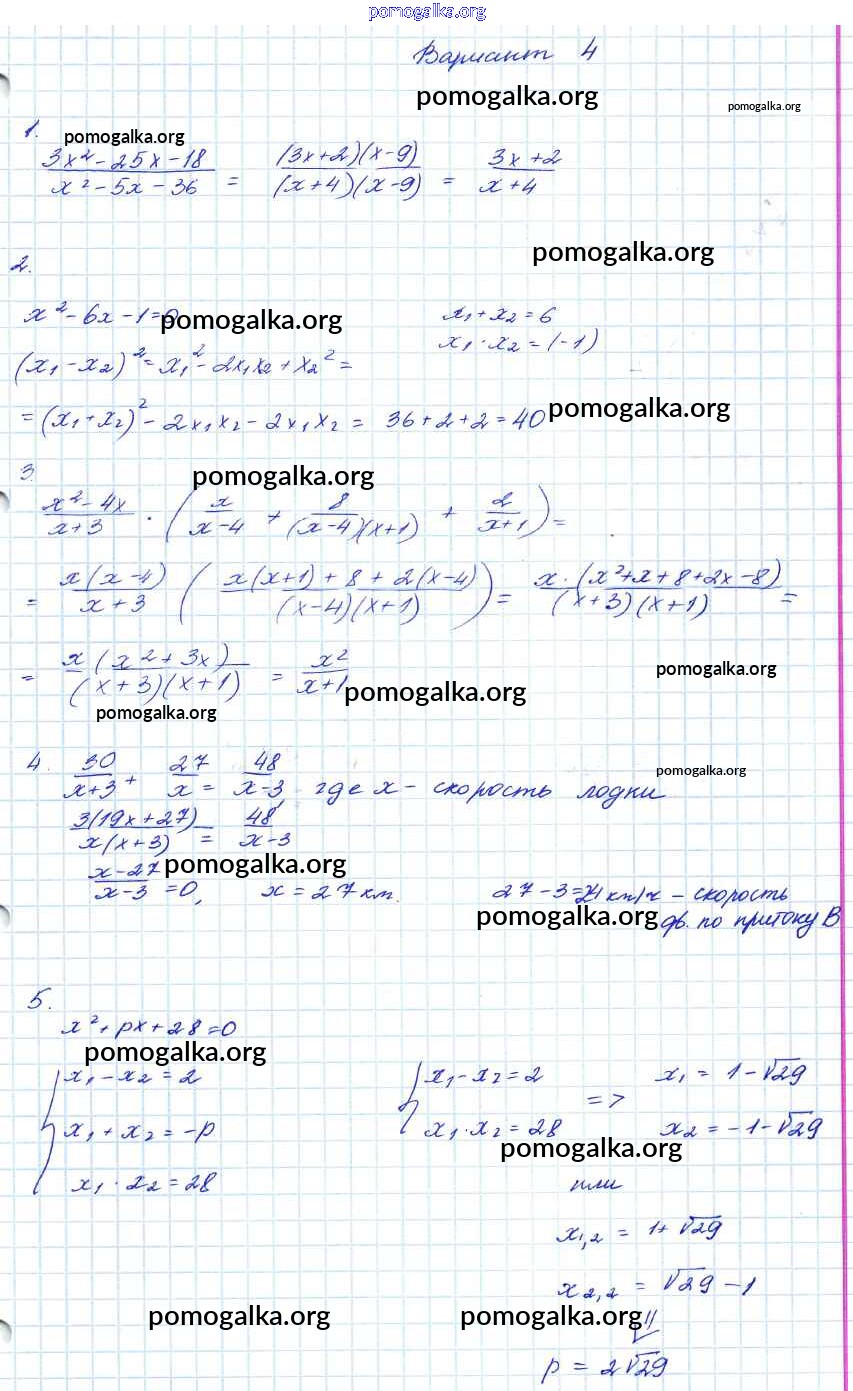 pomogalka.org
Вариант 4
pomogalka.org pomogalka.org
1. pomogalka.org
(3x² - 25x - 18)/(x² - 5x - 36) = ((3x+2)(x-9))/((x+4)(x-9)) = (3x+2)/(x+4)
pomogalka.org
2.
x² - 6x - 1 = 0 pomogalka.org x₁ + x₂ = 6
x₁ · x₂ = (-1)
(x₁ - x₂)² = x₁² - 2x₁x₂ + x₂² =
= (x₁ + x₂)² - 2x₁x₂ - 2x₁x₂ = 36 + 2 + 2 = 40 pomogalka.org
3. pomogalka.org
(x² - 4x)/(x+3) · (x/(x-4) + 8/((x-4)(x+1)) + 2/(x+1)) =
= (x(x-4))/(x+3) ((x(x+1) + 8 + 2(x-4))/((x-4)(x+1))) = (x·(x²+x+8+2x-8))/((x+3)(x+1)) =
= (x(x²+3x))/((x+3)(x+1)) = x²/(x+1) pomogalka.org pomogalka.org
pomogalka.org
4. 30/(x+3) + 27/x = 48/(x-3), где x - скорость лодки pomogalka.org
(3(19x+27))/(x(x+3)) = 48/(x-3)
(x-27)/(x-3) = 0, x = 27 км. pomogalka.org 27 - 3 = 24 км/ч - скорость
pomogalka.org дв. по притоку В
5.
x² + px + 28 = 0
pomogalka.org
{ x₁ - x₂ = 2 { x₁ - x₂ = 2 => x₁ = 1 - √29
x₁ + x₂ = -p x₁ · x₂ = 28 x₂ = -1 - √29
pomogalka.org
x₁ · x₂ = 28 или
x₁,₂ = 1 + √29
x₂,₂ = √29 - 1
pomogalka.org pomogalka.org
p = 2√29